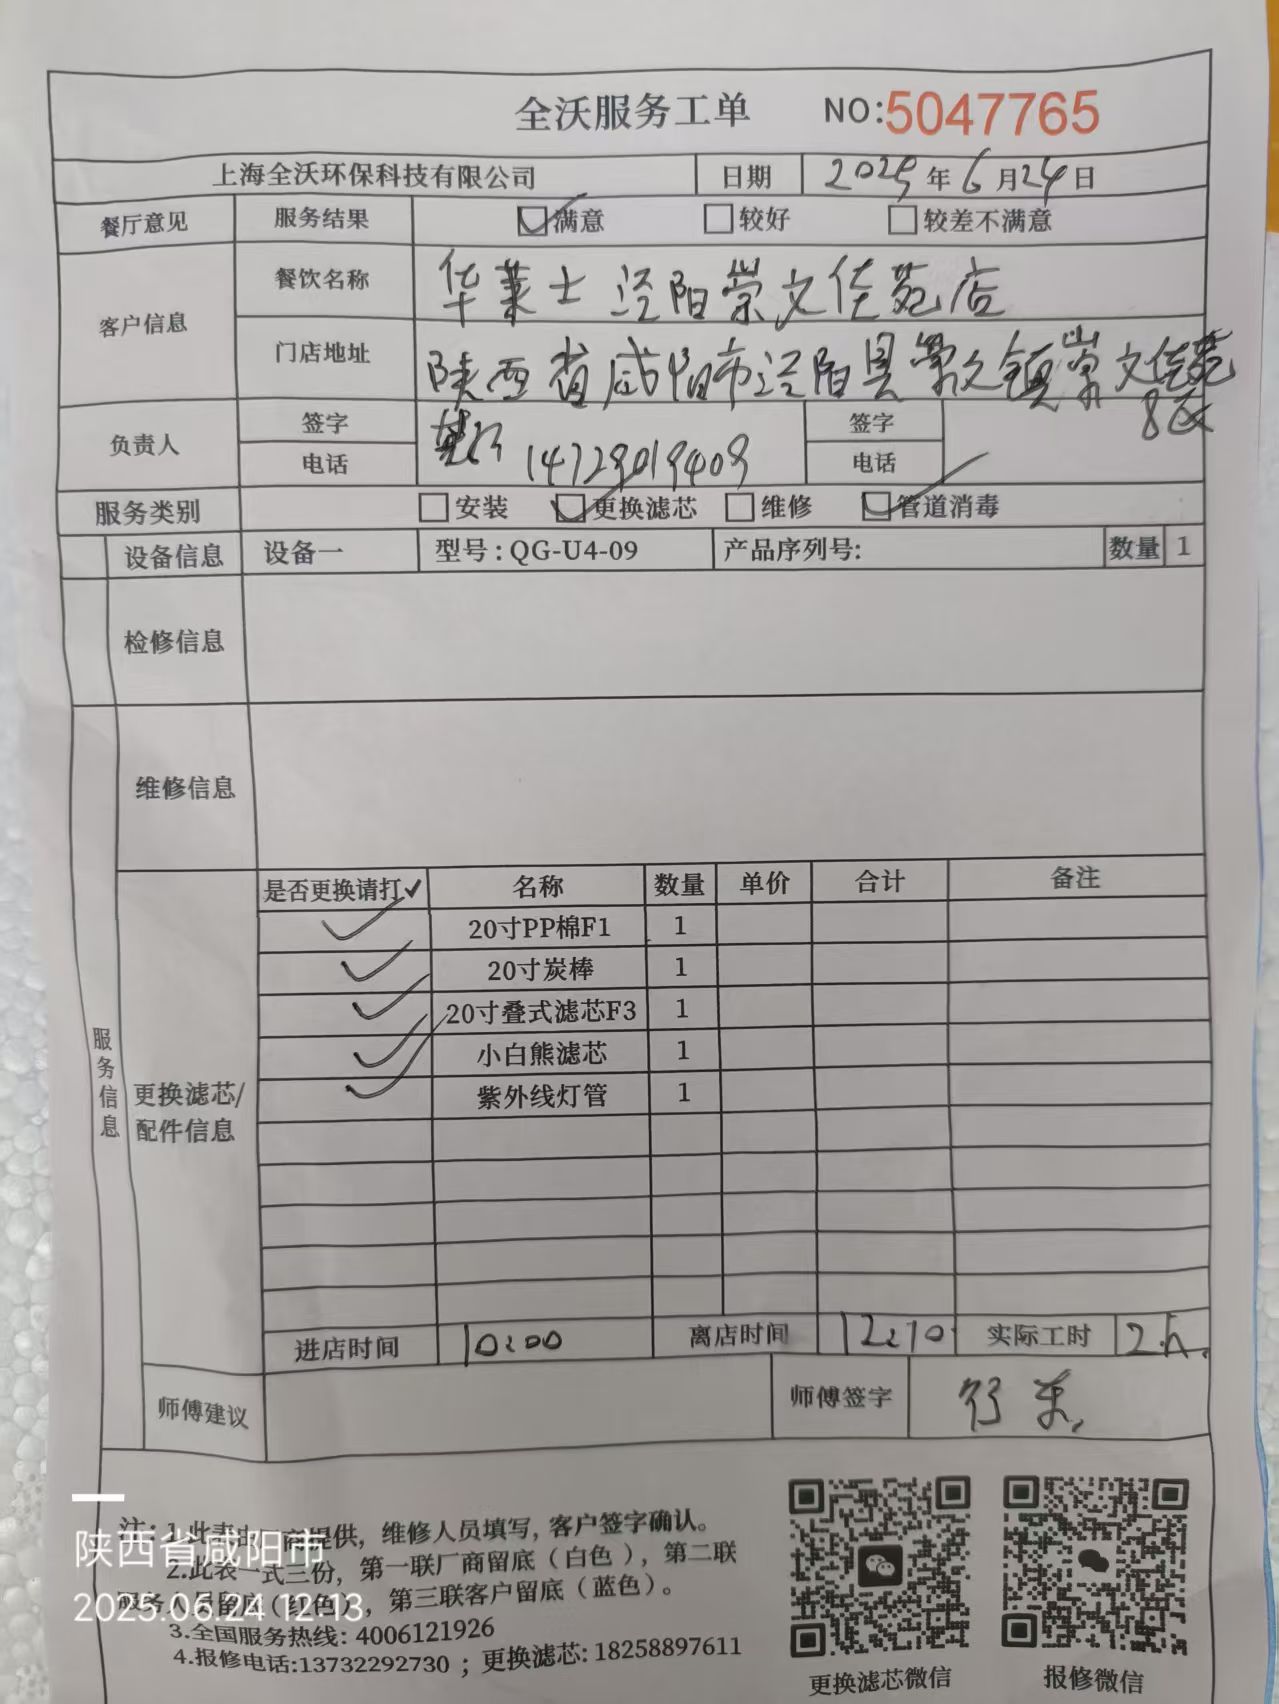 全沃服务工单 NO:5047765
上海全沃环保科技有限公司 日期 2025年6月24日
餐厅意见 服务结果 满意 较好 较差不满意
客户信息 餐饮名称 华莱士 泾阳崇文佳苑店
门店地址 陕西省咸阳市泾阳县崇文镇崇文佳苑
负责人 签字 签字
电话 14729019409 电话
服务类别 安装 更换滤芯 维修 管道消毒
设备信息 设备一 型号:QG-U4-09 产品序列号: 数量 1
检修信息
维修信息
服务信息
更换滤芯/
配件信息
是否更换请打✓ 名称 数量 单价 合计 备注
✓ 20寸PP棉F1 1
✓ 20寸炭棒 1
✓ 20寸叠式滤芯F3 1
✓ 小白熊滤芯 1
✓ 紫外线灯管 1
进店时间 10:00 离店时间 12:10 实际工时
师傅建议 师傅签字
注: 1.此表由 商提供, 维修人员填写, 客户签字确认。
2.此表一式三份, 第一联厂商留底(白色), 第二联
服务人员留底(红色), 第三联客户留底(蓝色)。
3.全国服务热线: 4006121926
4.报修电话:13732292730 ; 更换滤芯: 18258897611
更换滤芯微信 报修微信
陕西省咸阳市
2025.06.24 12:13